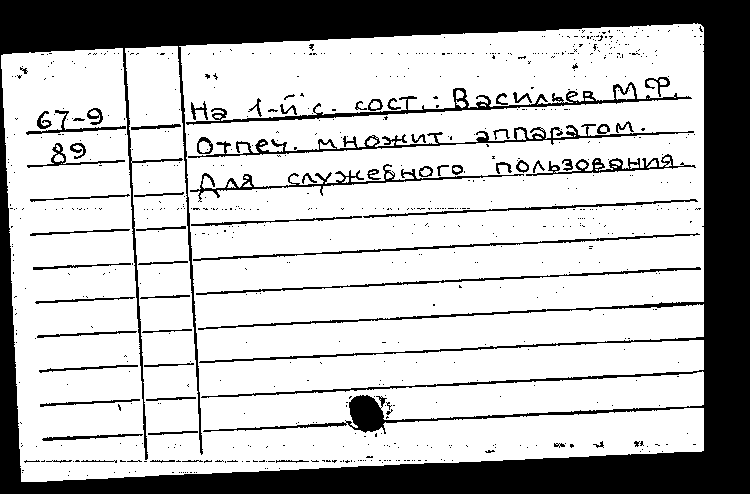 67-9 На 1-й с. сост.: Васильев М.Ф.
89 Отпеч. множит. аппаратом.
Для служебного пользования.